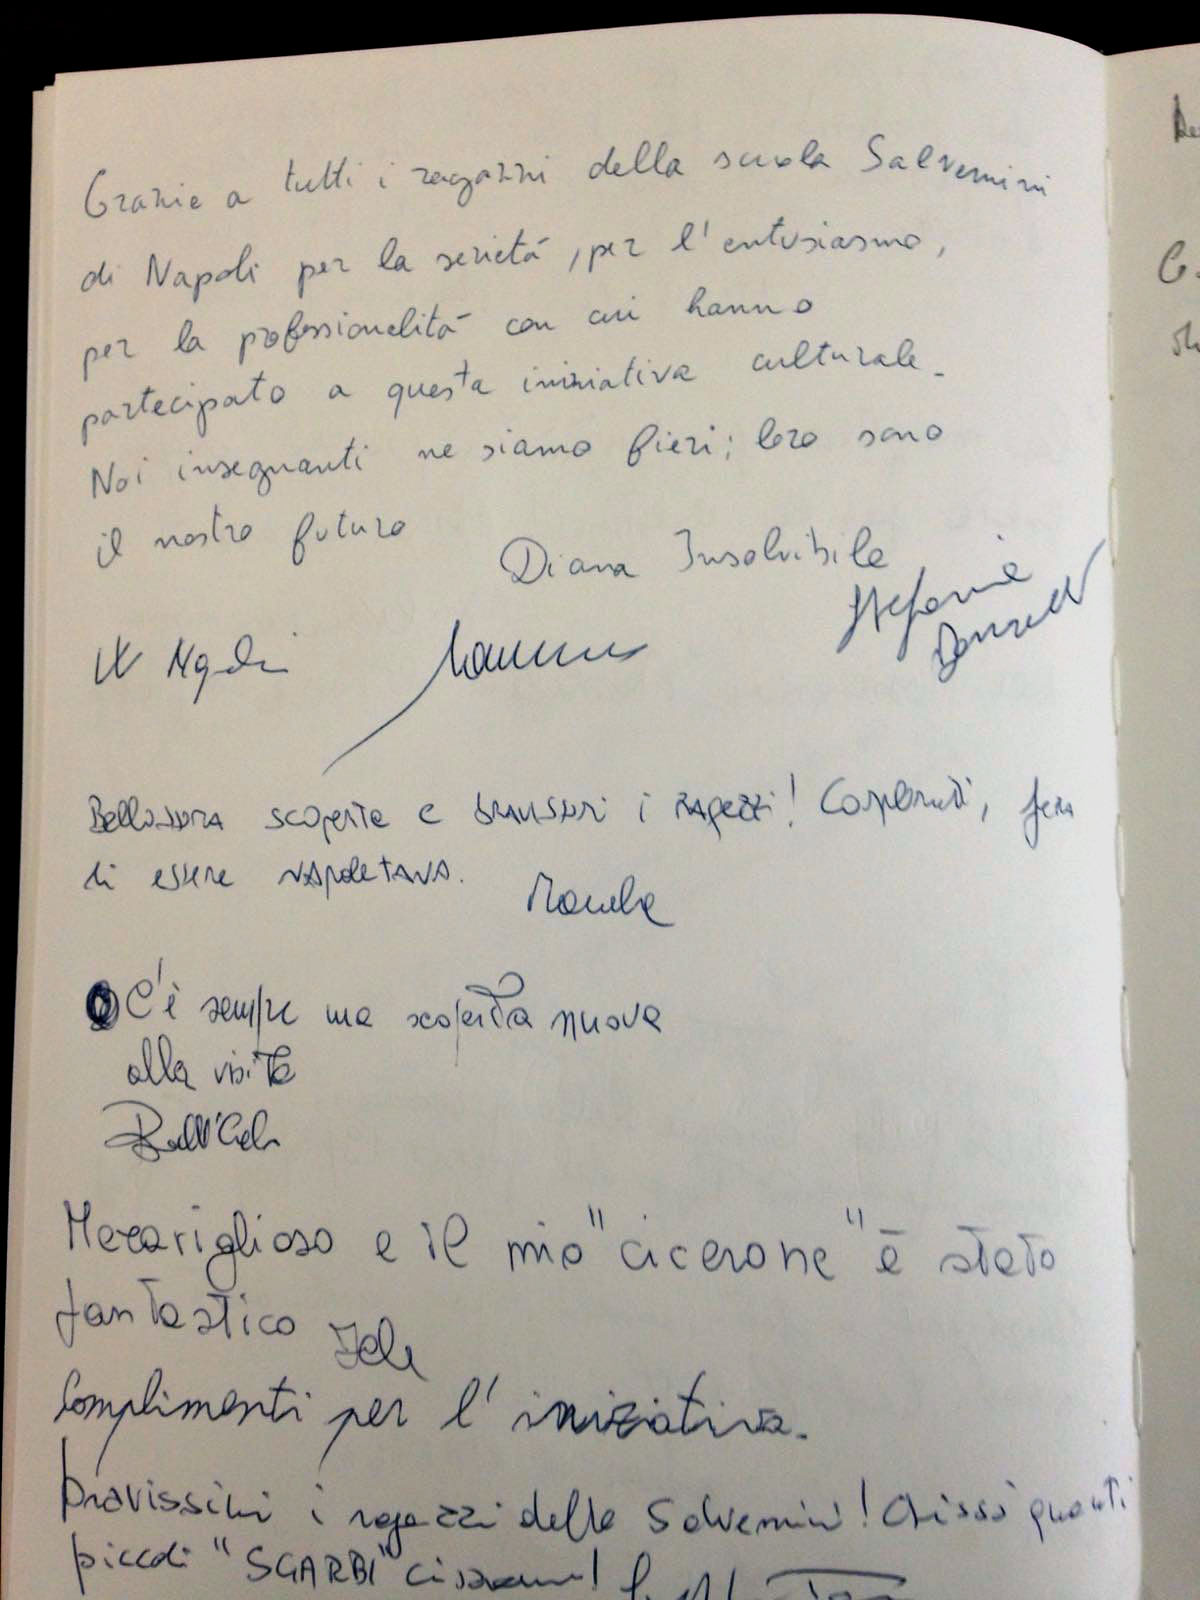 Grazie a tutti i ragazzi della scuola Salvemini
di Napoli per la serietà, per l'entusiasmo,
per la professionalità con cui hanno
partecipato a questa iniziativa culturale.
Noi insegnanti ne siamo fieri; loro sono
il nostro futuro
Diana Insolvibile
Stefania
W Napoli
Bellissima scoperta e bravissimi i ragazzi! Complimenti, fiera
di essere napoletana.
C'è sempre una scoperta nuova
alla visita
Meraviglioso e il mio "cicerone" è stato
fantastico
Complimenti per l'iniziativa.
bravissimi i ragazzi della Salvemini! Chissà quanti
piccoli "SGARBI" ci saranno!